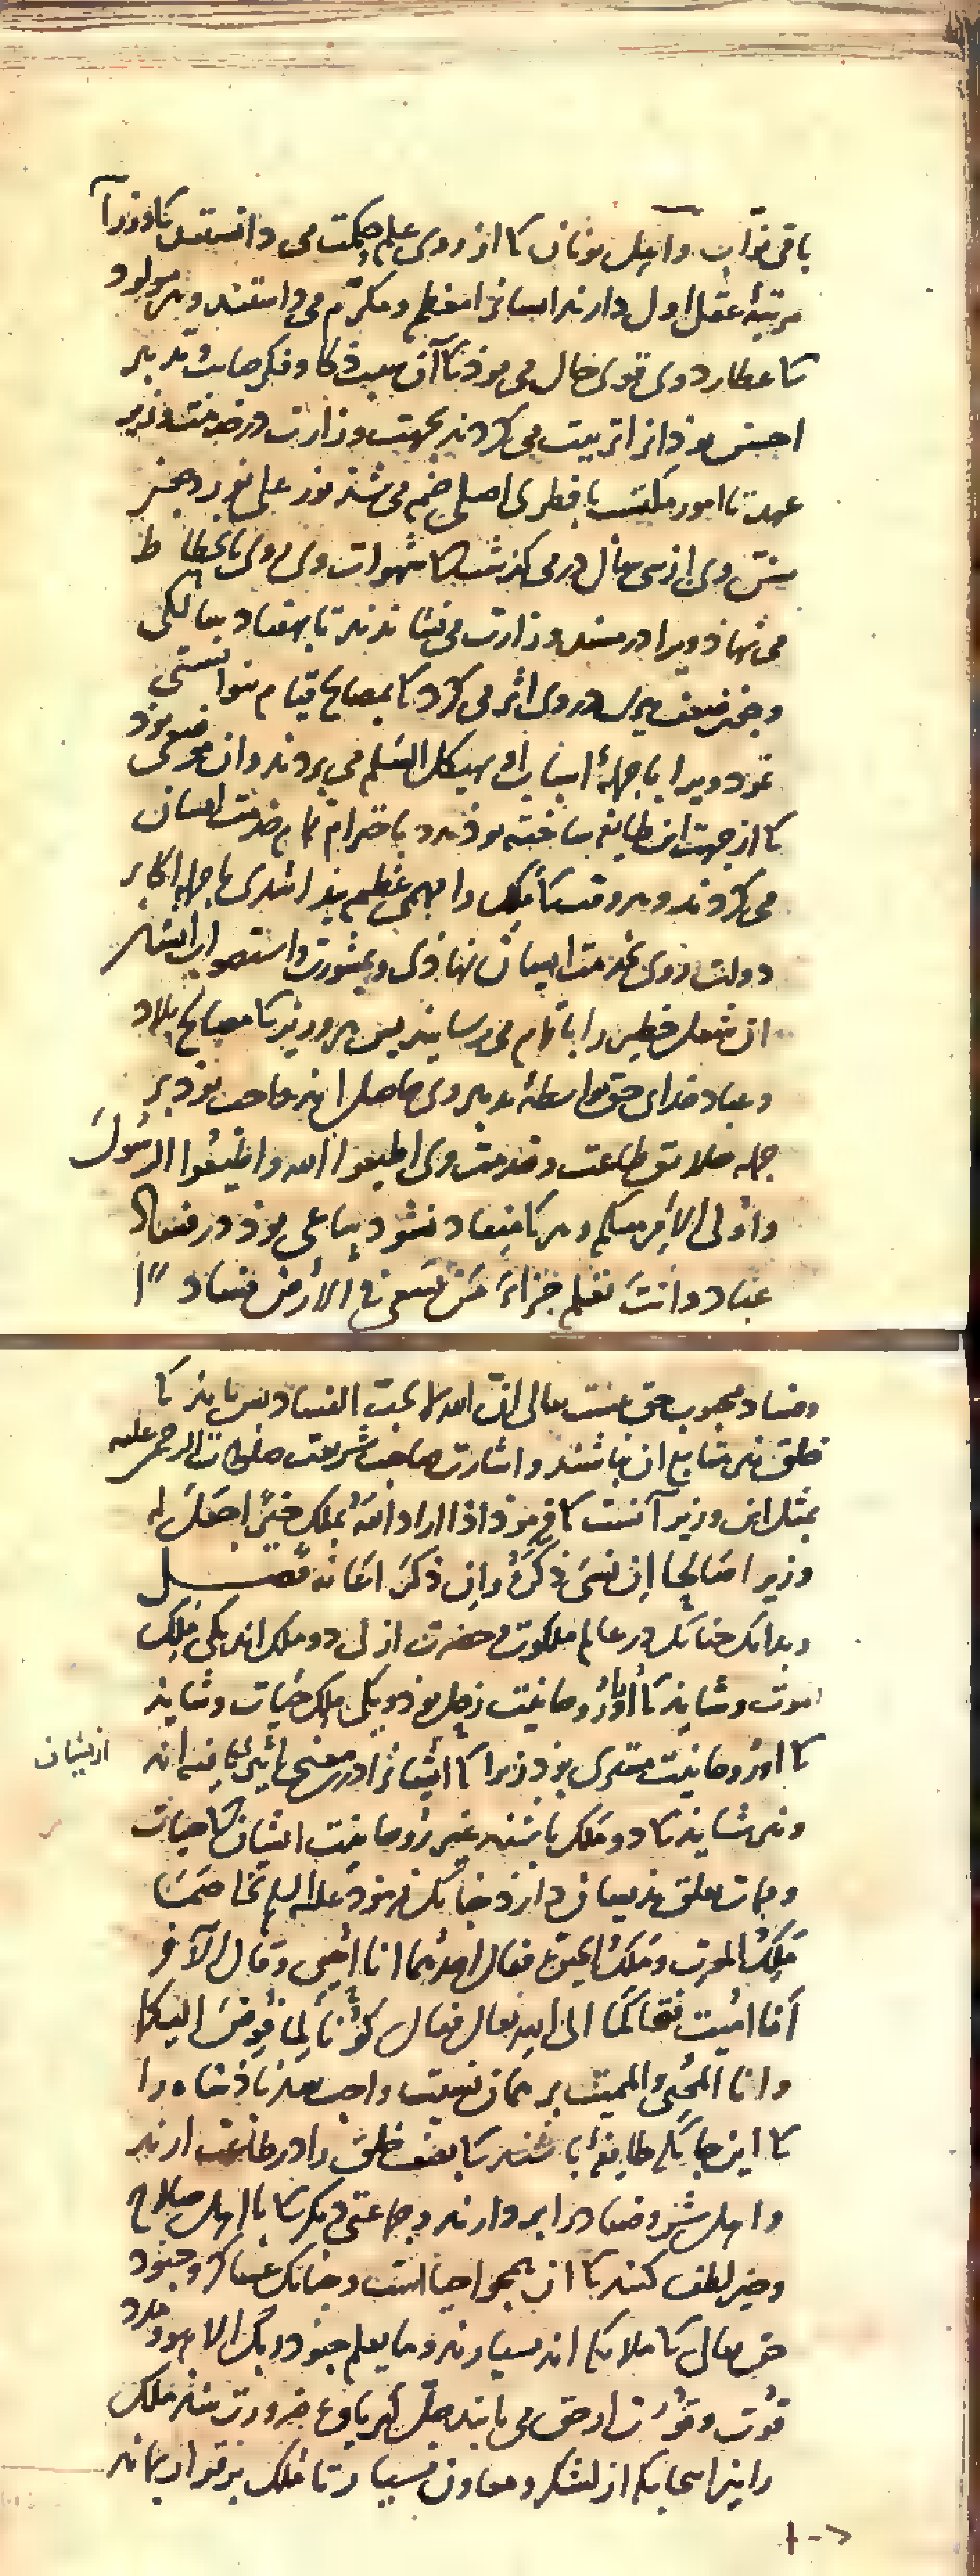 باقی نوآب و اهل یونان کا از روی علم حکمت می دانستند کا وزرا
مرتبهٔ عقل اول دارند ایشانرا معظم و مکرّم می داشتند و هر مولود
کا عطارد وی قوی حال می بوذ کا آن سبب ذکا و فکر صایب و تدبیر
احسن بوذ انرا تربیت می کردند بجهت وزارت در خدمت وزیر
عهد تا امور مکتسب با فطری اصلی ضم می شد نور علی نور و چون
سن وی از سی سال در می گذشت کا شهوات وی روی بانحطاط
می نهاذ ویرا در مسند وزارت می نشاندند تا بهفتاد سالگی
و چون ضعف پیری در وی اثر می کرد کا بمصالح قیام نتوانستی
نمود ویرا با جملهٔ اسباب او بهیکل السلم می بردند و ان موضعی بوذ
کا از جهت ان طایفه ساخته بوذند و باحترام تمام خدمت ایشان
می کردند و هر وقت کا ملک را مهمی عظیم پیدا شدی با جمله اکابر
دولت روی بخدمت ایشان نهاذی و بمشورت و استصواب ایشان
ان شغل خطیر را باتمام می رسانیدند پس هر وزیر کا مصالح بلاد
و عباد خدای حق بواسطهٔ تدبیر وی حاصل اید واجب بوذ بر
جمله خلایق طاعت و خدمت وی اطیعوا الله و اطیعُوا الرسُولَ
و اُولی الاَمر منکم و هر کا منقاد نشود ساعی بوذ در فساد
عباد و انتَ تعلم جزاءَ مَن یَسعی فی الارض فسادًا
و فساد محبوب حق نیست تعالی انّ الله لا یحبّ الفساد پس باید کا
خلق نیز متابع ان باشند و اشارت صاحب شریعت صلوات الرحمن علیه
بمثل این وزیر آنست کا فرموذ اذا اراد اللهُ بملک خیرًا جَعَلَ له
وزیرا صَالحًا اِن نسیَ ذکّرَهُ و اِن ذکرَ اعَانه فصــل
و بدانک چنانک در عالم ملکوت و حضرت ازلی دو ملک اند یکی ملک
الموت و شاید کا او روحانیت زحل بوذ و یکی ملک حیات و شاید
کا او روحانیت مشتری بوذ زیرا کا ایشانرا در معنی تاثیر یافته اند
ازیشان
و نیز شاید کا دو ملک باشند غیر روحانیت ایشان کا حیات
و ممات تعلق بذیشان دارذ چنانک فرموذ علیه السلم تخاصَمَا
مَلَکُ الموت و مَلَکُ الحیوة فقال احدُهما انا اُحیی و قال الآخر
اَنا اُمیت فتحاکَمَا الی الله تعالی فقال کوُنا لِما فُوّضَ الیکما
و انا المُحیی و المُمیت بر همان نسبت واجب بوذ باذشاه را
کا این جایگه طایفهٔ باشند کا بعنف خلق را در طاعت ارند
و اهل شر و فساد را بردارند و جماعتی دیگر کا با اهل صلاح
و خیر لطف کنند کا ان همچو احیا است و چنانک عساکر و جنود
حق تعالی کا ملایکه اند بسیارند و ما یعلم جنوذ ربک الا هو و مدد
قوّت و قدرت از حق می یابند جلّ ذکره باذشاه ضرورت شد ملک
را نیز اسبابکه از لشکر و معاون بسیار تا ملک برقرار بماند